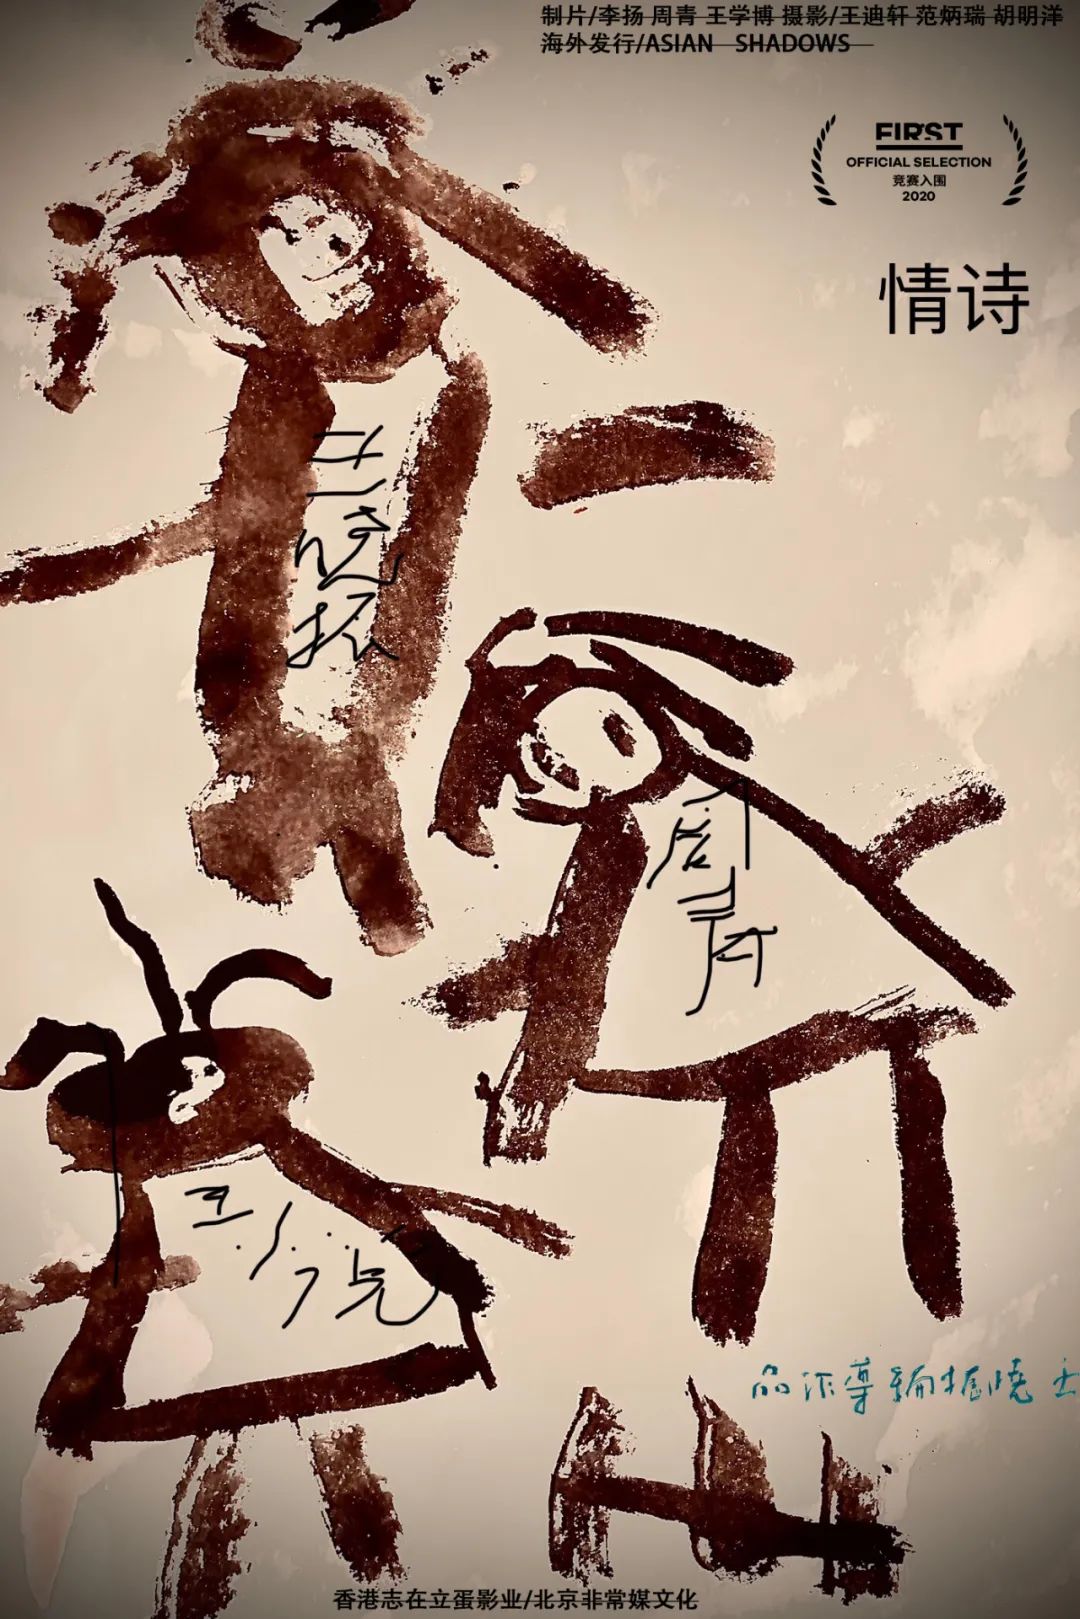 制片/李扬 周青 王学博 摄影/王迪轩 范炳瑞 胡明洋
海外发行/ASIAN SHADOWS
FIRST
OFFICIAL SELECTION
竞赛入围
2020
情诗
王晓振
周青
王小完
王曉振編導作品
香港志在立蛋影业/北京非常媒文化